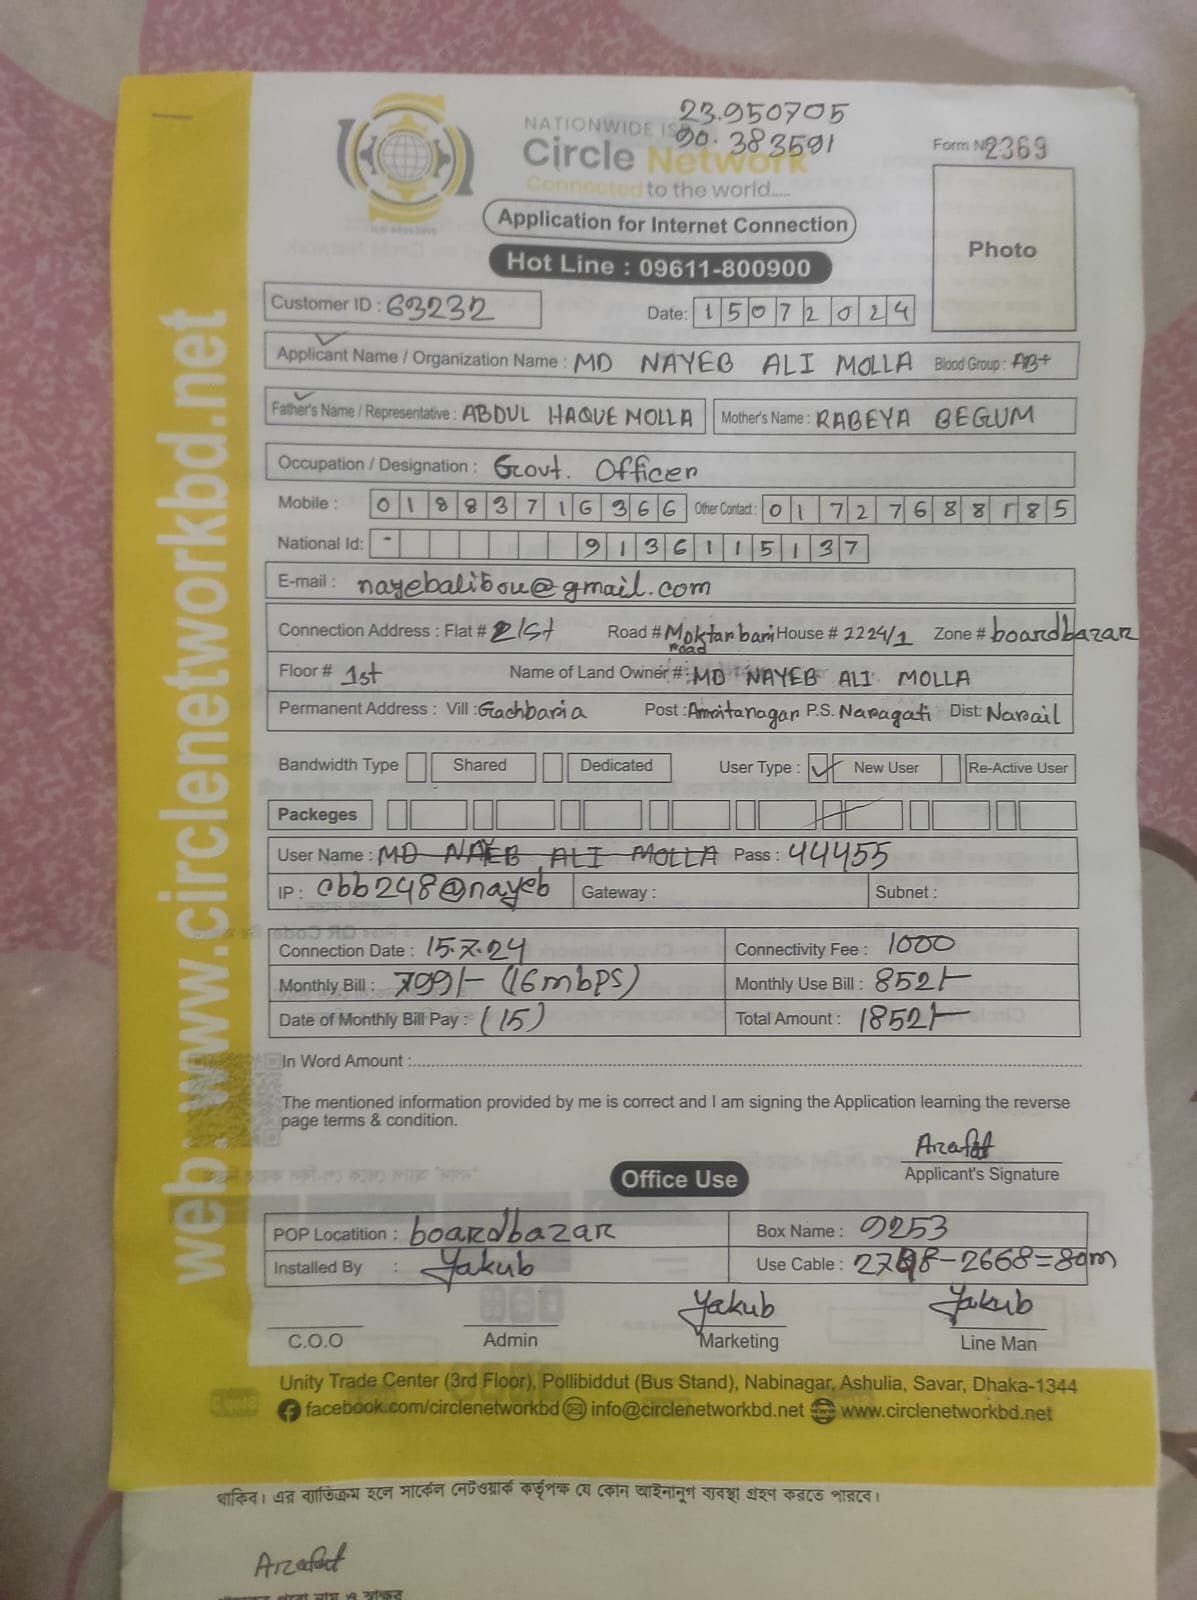 23.950705
90.383591
NATIONWIDE ISP
Circle Network
Connected to the world.....
Form No 2369
Photo
Application for Internet Connection
Hot Line : 09611-800900
Customer ID : 63232 Date: 15072024
Applicant Name / Organization Name : MD NAYEB ALI MOLLA Blood Group : AB+
Father's Name / Representative : ABDUL HAQUE MOLLA Mother's Name : RABEYA BEGUM
Occupation / Designation : Govt. Officer
Mobile : 01883716366 Other Contact : 01727688185
National Id: 9136115137
E-mail : nayebalibou@gmail.com
Connection Address : Flat # 1st Road # Moktar bari road House # 2224/1 Zone # boardbazar
Floor # 1st Name of Land Owner # : MD NAYEB ALI MOLLA
Permanent Address : Vill : Gachbaria Post : Amritanagar P.S. Naragati Dist: Narail
Bandwidth Type Shared Dedicated User Type : New User Re-Active User
Packeges
User Name : MD NAEB ALI MOLLA Pass : 44455
IP : cbb248@nayeb Gateway : Subnet :
Connection Date : 15.7.24 Connectivity Fee : 1000
Monthly Bill : 799/- (16mbps) Monthly Use Bill : 852/-
Date of Monthly Bill Pay : (15) Total Amount : 1852/-
In Word Amount :
The mentioned information provided by me is correct and I am signing the Application learning the reverse
page terms & condition.
Arafat
Applicant's Signature
Office Use
POP Locatition : boardbazar Box Name : 9253
Installed By : Yakub Use Cable : 2748-2668=80m
Yakub Yakub
C.O.O Admin Marketing Line Man
Unity Trade Center (3rd Floor), Pollibiddut (Bus Stand), Nabinagar, Ashulia, Savar, Dhaka-1344
facebook.com/circlenetworkbd info@circlenetworkbd.net www.circlenetworkbd.net
web: www.circlenetworkbd.net
থাকিব। এর ব্যতিক্রম হলে সার্কেল নেটওয়ার্ক কর্তৃপক্ষ যে কোন আইনানুগ ব্যবস্থা গ্রহণ করতে পারবে।
Arafat